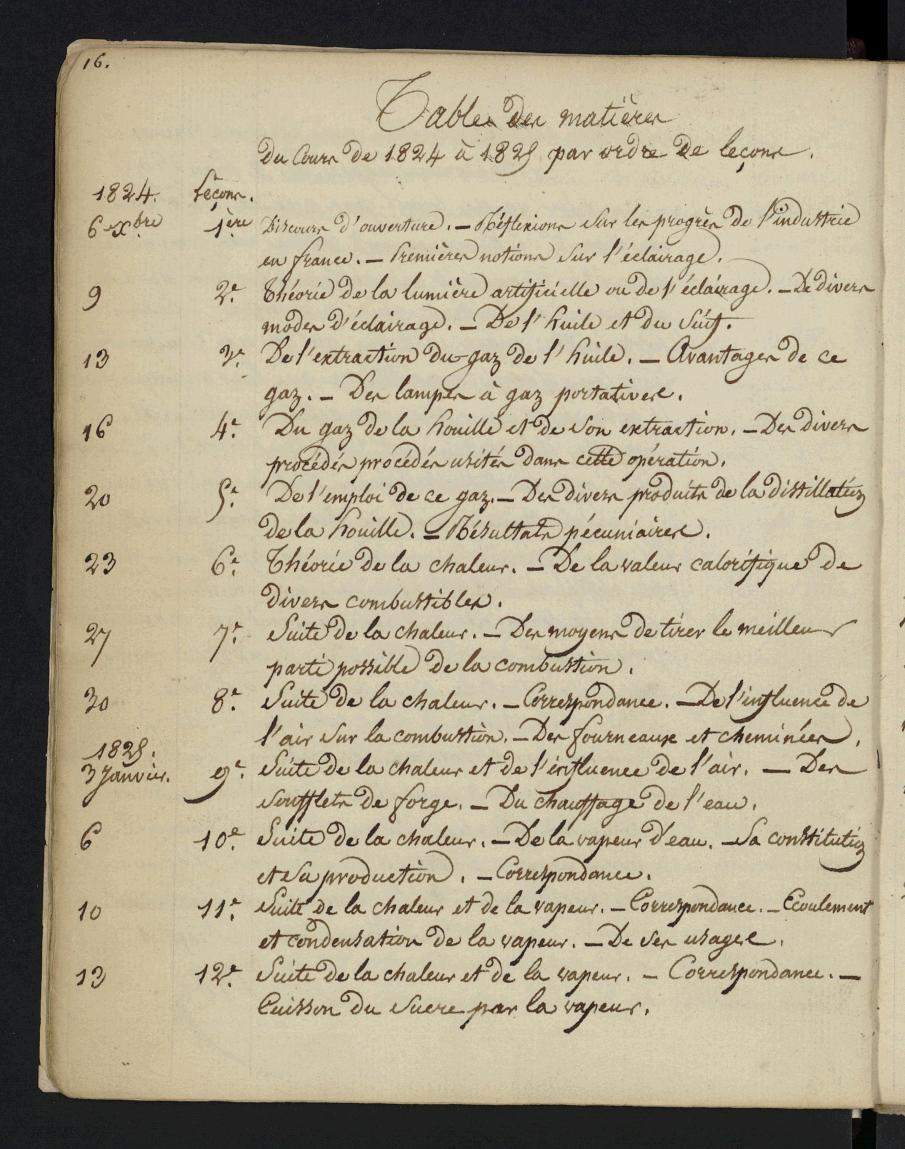 16.
Table des matières
du Cours de 1824 à 1825 par ordre de leçons.
1824. Leçons.
6 Xbre 1ère Discours d'ouverture. — Réflexions sur les progrès de l'industrie
en france. — Premières notions sur l'éclairage.
9 2e. Théorie de la lumière artificielle ou de l'éclairage. — De divers
modes d'éclairage. — De l'huile et du Suif.
13 3e. De l'extraction du gaz de l'huile. — Avantages de ce
gaz. — Des lampes à gaz portatives.
16 4e. Du gaz de la houille et de son extraction. — Des divers
procédés procédés usités dans cette opération.
20 5e. De l'emploi de ce gaz. — Des divers produits de la distillation
de la houille. — Résultats pécuniaires.
23 6e. Théorie de la chaleur. — De la valeur calorifique de
divers combustibles.
27 7e. Suite de la chaleur. — Des moyens de tirer le meilleur
parti possible de la combustion.
30 8e. Suite de la chaleur. — Correspondance. — De l'influence de
l'air sur la combustion. — Des fourneaux et cheminées.
1825.
3 Janvier. 9e. Suite de la chaleur et de l'influence de l'air. — Des
soufflets de forge. — Du chauffage de l'eau.
6 10e. Suite de la chaleur. — De la vapeur d'eau. — Sa constitution
et sa production. — Correspondance.
10 11e. Suite de la chaleur et de la vapeur. — Correspondance. — Ecoulement
et condensation de la vapeur. — De ses usages.
13 12e. Suite de la chaleur et de la vapeur. — Correspondance. —
Cuisson du sucre par la vapeur.